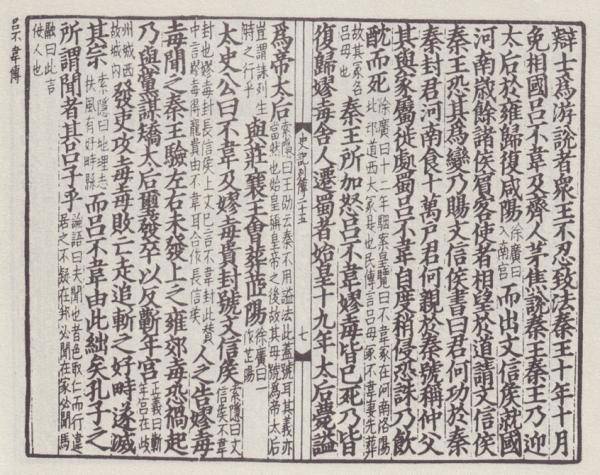 辯士爲游說者衆王不忍致法秦王十年十月
免相國吕不韋及齊人茅焦說秦王秦王乃迎
太后於雍歸復咸陽徐廣曰入南宮而出文信侯就國
河南歲餘諸侯賔客使者相望於道請文信侯
秦王恐其爲變乃賜文信侯書曰君何功於秦
秦封君河南食十萬户君何親於秦號稱仲父
其與家屬徙處蜀吕不韋自度稍侵恐誅乃飲
酖而死徐廣曰十二年駰案皇覽曰吕不韋冢在河南洛陽北邙道西大冢是也民傳言吕母冢不韋妻先葬
故其冢名吕母也秦王所加怒吕不韋嫪毐皆已死乃皆
復歸嫪毐舍人遷蜀者始皇十九年太后薨謚
史記列傳二十五 七
爲帝太后索隱曰王劭云秦不用謚法此蓋號耳其義亦當然也始皇稱皇帝之後故其母號爲帝太后
豈謂誄列生時之行乎與莊襄王會葬茝陽徐廣曰一作芷陽
太史公曰不韋及嫪毐貴封號文信侯索隱曰文信侯不韋
封也嫪毐封長信侯上文已言不韋封此賛中言嫪毐得寵貴由不韋耳合作長信侯人之告嫪毐
毐聞之秦王驗左右未發上之雍郊毐恐禍起
乃與黨謀矯太后璽發卒以反蘄年宮正義曰蘄年宮在岐
州城西故城内發吏攻毐毐敗亡走追斬之好畤遂滅
其宗索隱曰地理志扶風有好畤縣而吕不韋由此絀矣孔子之
所謂聞者其吕子乎論語曰夫聞也者色取仁而行違居之不疑在邦必聞在家必聞馬
融曰此言佞人也
吕不韋傳